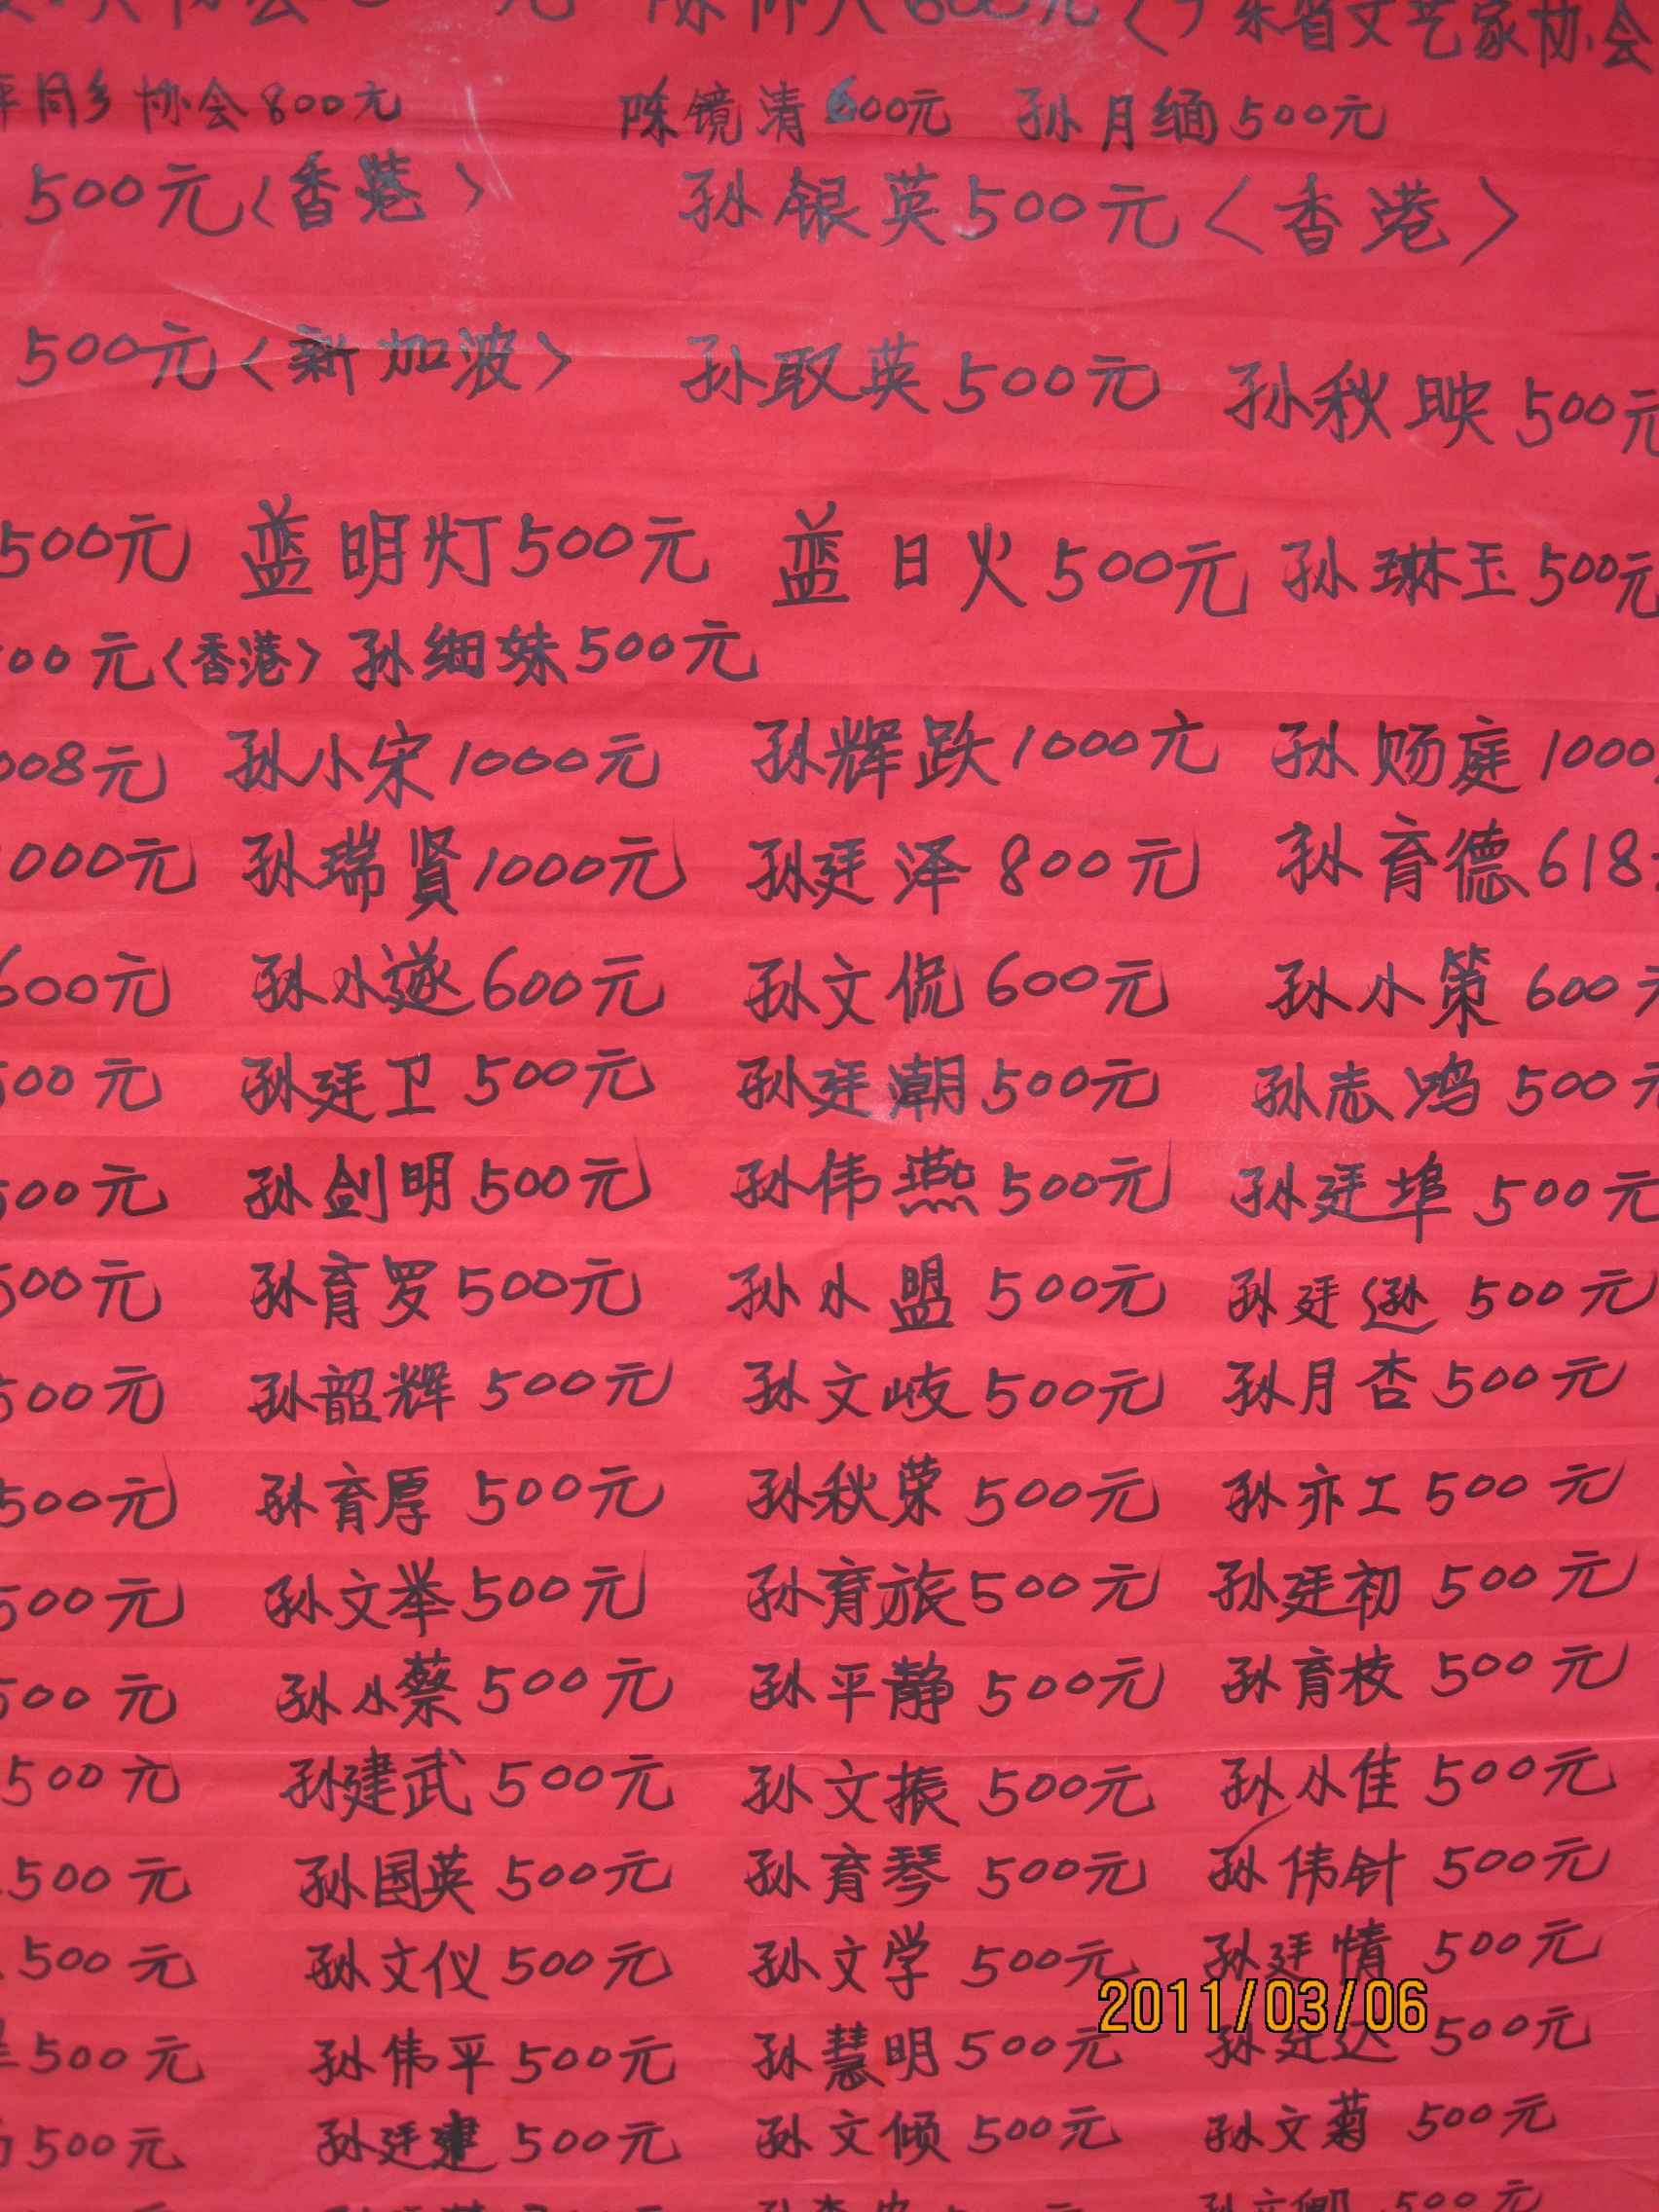 600元〈广东省文艺家协会
同乡协会800元 陈镜清600元 孙月缅500元
500元〈香港〉 孙银英500元〈香港〉
500元〈新加波〉 孙取英500元 孙秋映500元
500元 蓝明灯500元 蓝日火500元 孙琳玉500元
00元〈香港〉孙细妹500元
008元 孙小宋1000元 孙辉跃1000元 孙赐庭1000
000元 孙瑞贤1000元 孙廷泽800元 孙育德618
600元 孙小遂600元 孙文侃600元 孙小策600元
500元 孙廷卫500元 孙廷潮500元 孙志鸿500元
500元 孙剑明500元 孙伟燕500元 孙廷埠500元
500元 孙育罗500元 孙小盟500元 孙廷逊500元
500元 孙韶辉500元 孙文岐500元 孙月杏500元
500元 孙育厚500元 孙秋荣500元 孙亦工500元
500元 孙文举500元 孙育旅500元 孙廷初500元
500元 孙小蔡500元 孙平静500元 孙育枝500元
500元 孙建武500元 孙文振500元 孙小佳500元
500元 孙国英500元 孙育琴500元 孙伟针500元
500元 孙文仪500元 孙文学500元 孙廷情500元
2011/03/06
500元 孙伟平500元 孙慧明500元 孙廷达500元
500元 孙廷建500元 孙文倾500元 孙文菊500元
孙文卿500元